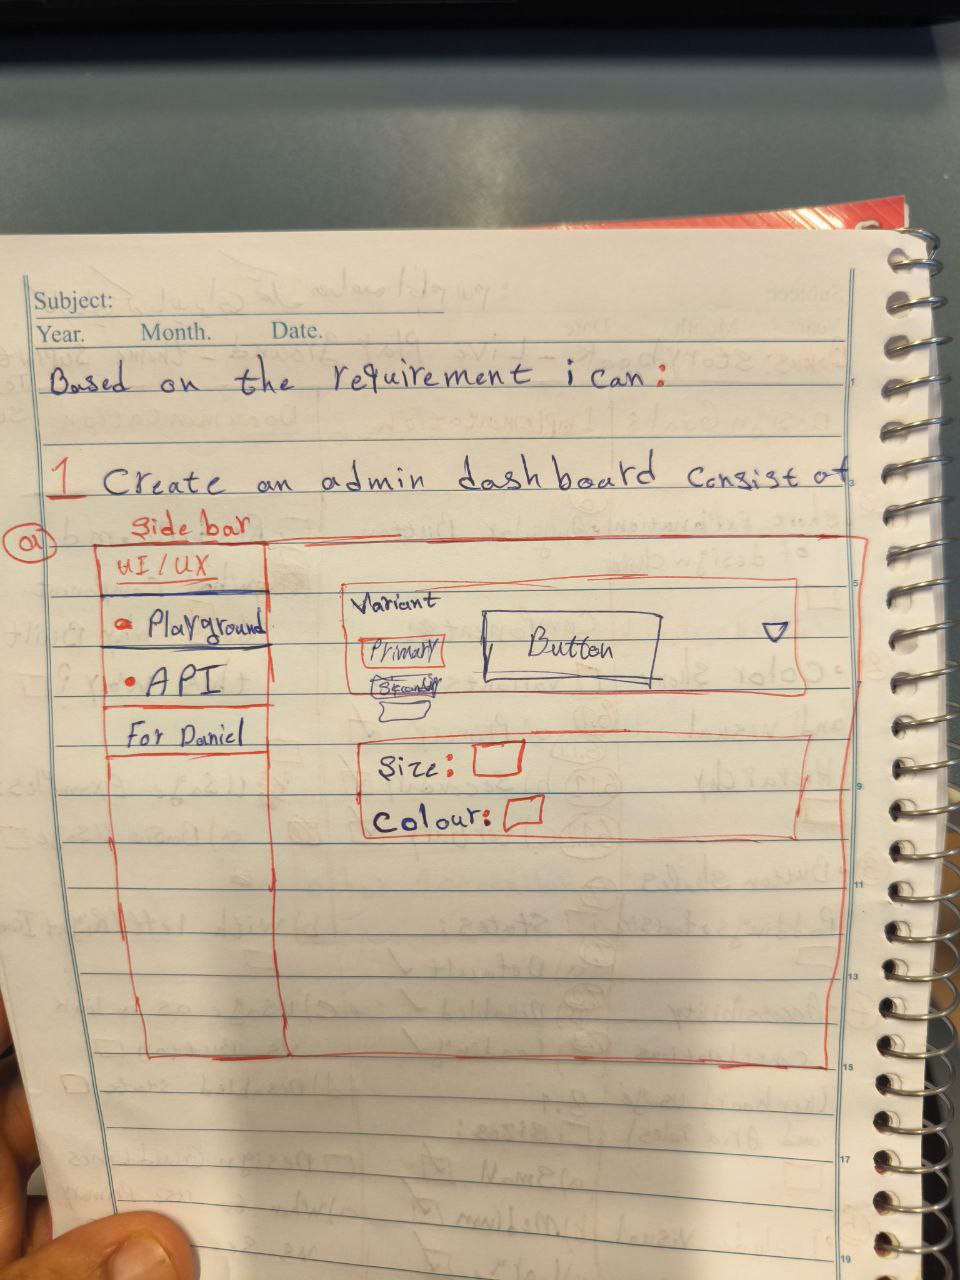 Subject:
Year. Month. Date.
Based on the requirement i can:
1 Create an admin dashboard Consist of
a Side bar
UI/UX
• Playground
• API
For Daniel
Variant
Primary
Secondary
Button
Size:
Colour:
1
3
5
7
9
11
13
15
17
19